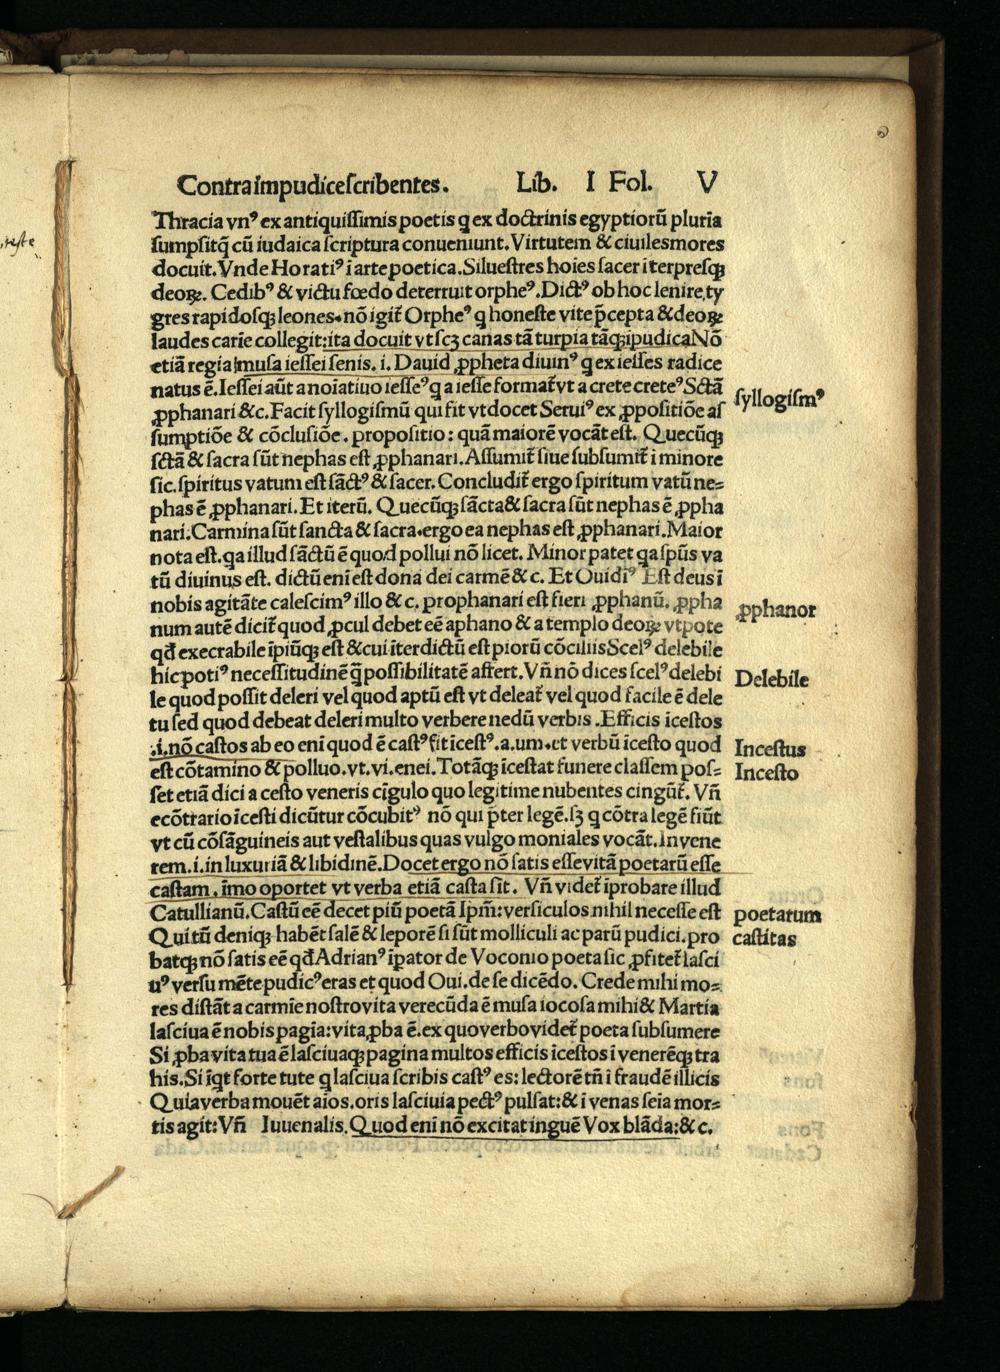 Contra impudice scribentes. Lib. I Fol. V
Thracia vnꝰ ex antiquissimis poetis q ex doctrinis egyptiorū pluria
sumpsitq̄ cū iudaica scriptura conueniunt. Virtutem & ciuiles mores
docuit. Vnde Horatiꝰ ī arte poetica. Siluestres hoīes sacer īterpresqꝫ
deoꝝ. Cedibꝰ & victu fœdo deterruit orpheꝰ. Dictꝰ ob hoc lenire ty
gres rapidosqꝫ leones. nō igit̄ Orpheꝰ q honeste vite p̄cepta & deoꝝ
laudes carīe collegit: ita docuit vt scꝫ canas tā turpia tāqꝫ īpudica Nō
etiā regia musa iessei senis. i. Dauid ꝓpheta diuinꝰ q ex iesses radice
natus ē. Iessei aūt a noīatiuo iesseꝰ q a iesse format̄ vt a crete creteꝰ Sctā
ꝓphanari &c. Facit syllogismū qui fit vt docet Seruiꝰ ex ꝓpositiōe as
sumptiōe & cōclusiōe. propositio: quā maiorē vocāt est. Quecūqꝫ
sctā & sacra sūt nephas est ꝓphanari. Assumit̄ siue subsumit̄ ī minore
sic. spiritus vatum est sāctꝰ & sacer. Concludit̄ ergo spiritum vatū ne=
phas ē ꝓphanari. Et iterū. Quecūqꝫ sācta & sacra sūt nephas ē ꝓpha
nari: Carmina sūt sancta & sacra. ergo ea nephas est ꝓphanari. Maior
nota est. qa illud sāctū ē quod pollui nō licet. Minor patet qa spūs va
tū diuinus est. dictū enī est dona dei carmē & c. Et Ouidiꝰ Est deus ī
nobis agitāte calescimꝰ illo & c. prophanari est fieri ꝓphanū. ꝓpha
num autē dicit̄ quod ꝓcul debet eē a phano & a templo deoꝝ vtpote
qđ execrabile īpiūqꝫ est & cui īterdictū est piorū cōciliis Scelꝰ delebile
hic potiꝰ necessitudinē q̄ possibilitatē affert. Vn̄ nō dices scelꝰ delebi
le quod possit deleri vel quod aptū est vt deleat̄ vel quod facile ē dele
tu sed quod debeat deleri multo verbere nedū verbis. Efficis īcestos
.i. nō castos ab eo enī quod ē castꝰ fit īcestꝰ. a. um. et verbū īcesto quod
est cōtamino & polluo. vt. vi. enei. Totāqꝫ īcestat funere classem pos=
set etiā dici a cesto veneris cīgulo quo legitime nubentes cingūt̄. Vn̄
ecōtrario īcesti dicūtur cōcubitꝰ nō qui p̄ter legē. sꝫ q cōtra legē fiūt
vt cū cōsāguineis aut vestalibus quas vulgo moniales vocāt. In vene
rem. i. in luxuriā & libidinē. Docet ergo nō satis esse vitā poetarū esse
castam. īmo oportet vt verba etiā casta sīt. Vn̄ videt̄ īprobare illud
Catullianū. Castū eē decet piū poetā Ipm̄: versiculos nihil necesse est
Qui tū deniqꝫ habēt salē & leporē si sūt molliculi ac parū pudici. pro
batqꝫ nō satis eē qđ Adrianꝰ īpator de Voconio poeta sic ꝓfitet̄ lasci
uꝰ versu mēte pudicꝰ eras et quod Oui. de se dicēdo. Crede mihi mo=
res distāt a carmīe nostro vita verecūda ē musa iocosa mihi & Martia
lasciua ē nobis pagīa: vita ꝓba ē. ex quo verbo videt̄ poeta subsumere
Si ꝓba vita tua ē lasciuaqꝫ pagina multos efficis īcestos ī venerēqꝫ tra
his. Si īqt forte tute q lasciua scribis castꝰ es: lectorē tn̄ ī fraudē illicis
Quia verba mouēt aīos. oris lasciuia pectꝰ pulsat: & ī venas seīa mor=
tis agit: Vn̄ Iuuenalis. Quod enī nō excitat inguē Vox blāda: & c.
syllogismꝰ
ꝓphanor
Delebile
Incestus
Incesto
poetarum
castitas